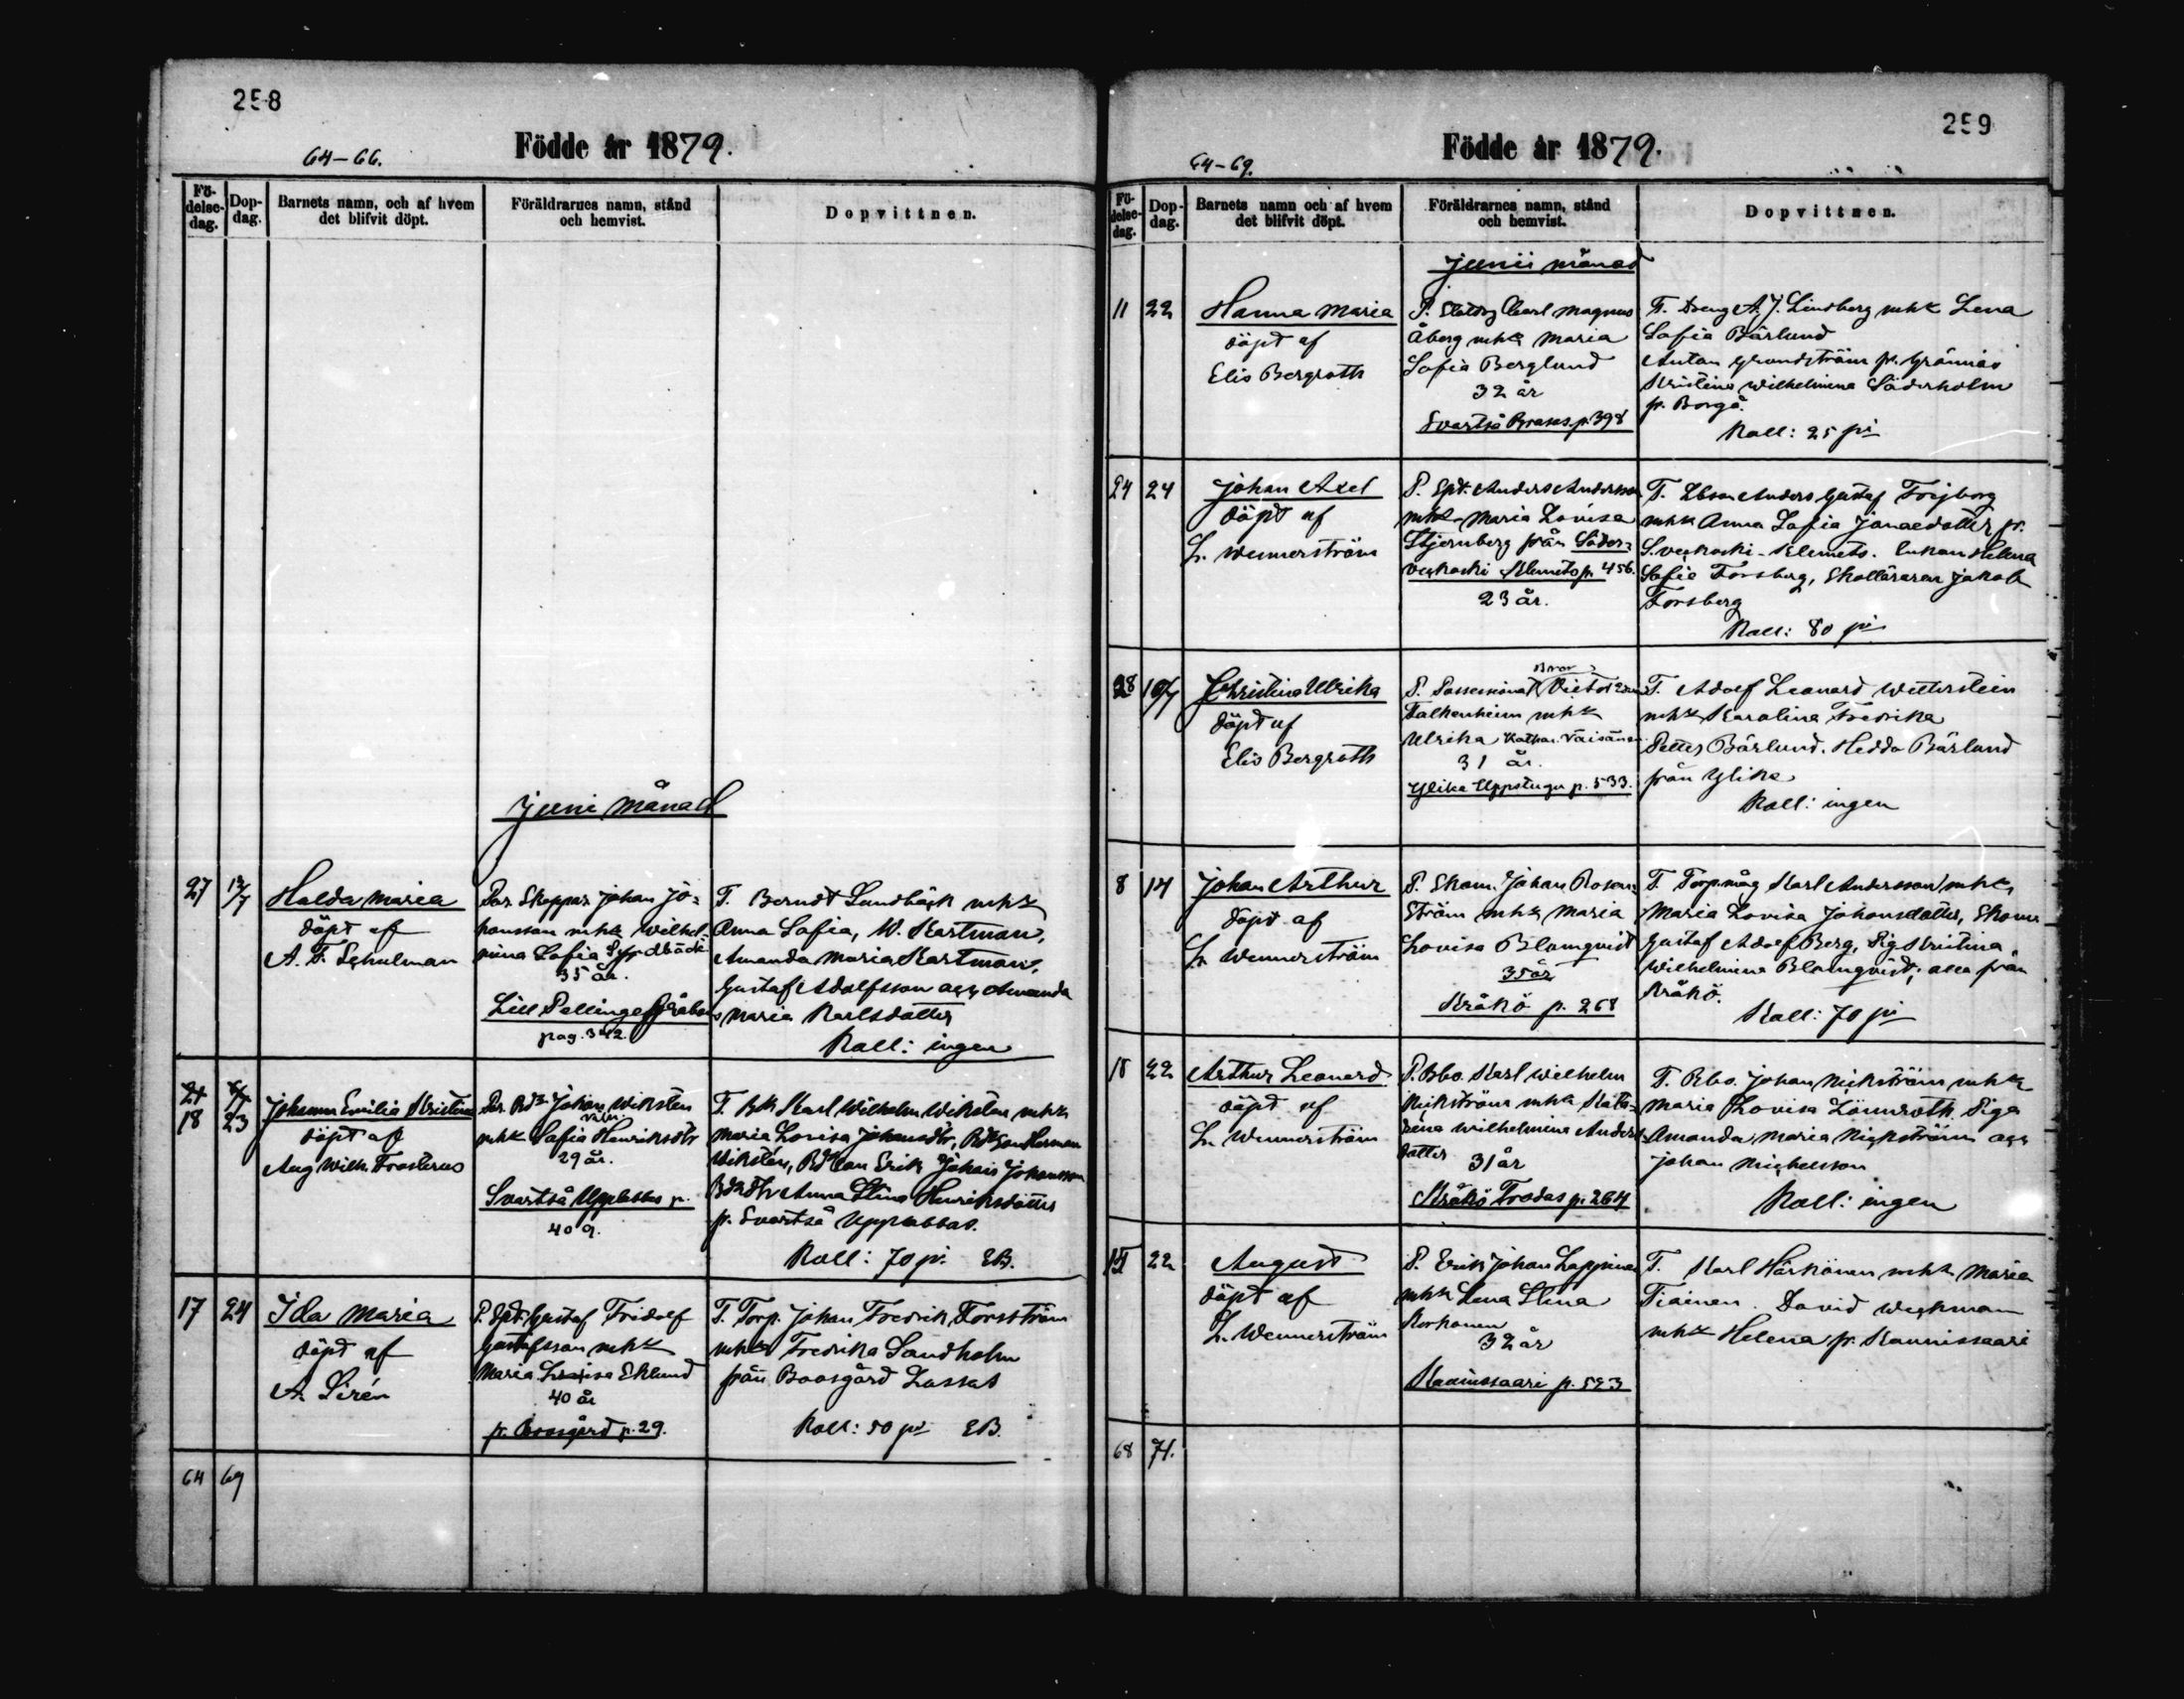 258
Födde år 1879.
64-66.
Fö-
delse-
dag.
Dop-
dag.
Barnets namn, och af hvem
det blifvit döpt.
Föräldrarnes namn, stånd
och hemvist.
Dopvittnen.
Juni månad
27
13/7
Hulda Maria
döpt af
A. F. Schulman
Skeppar Johan Jo-
hansson mhk Wilhel-
mina Sofia
35 år.
Lill Pellinge
pag. 342.
T. Berndt Sundbäck mhk
Anna Sofia, W. Kartman,
Amanda Maria Kartman,
Gustaf Adolfsson och Amanda
Maria Karlsdotter
Koll: ingen
18
23
Johanna Emilia Kristina
döpt af
Aug Wilh. Frosterus
Johan Wiksten
mhk Sofia Henriksdtr
29 år.
Svartså Upplabbas p.
409.
T. Karl Wilhelm Wiksten mhk
Maria Lovisa Johansdtr, Herman
Wikstén, Erik Johansson
Anna Stina Henriksdotter
p. Svartså Upplabbas.
Koll: 70 pi. EB.
17
24
Ida Maria
döpt af
A. Sirén
P. Gustaf Fridolf
Gustafsson mhk
Maria Lovisa Eklund
40 år
p. Boosgård p. 29.
T. Torp. Johan Fredrik Forsström
mhk Fredrika Sandholm
från Boosgård Lassas
Koll: 50 pi EB.
64
69
259
Födde år 1879.
64-69.
Fö-
delse-
dag.
Dop-
dag.
Barnets namn och af hvem
det blifvit döpt.
Föräldrarnes namn, stånd
och hemvist.
Dopvittnen.
Junii månad
11
22
Hanna Maria
döpt af
Elis Bergroth
P. Carl Magnus
Åberg mhk Maria
Sofia Berglund
32 år
Svartså Brasas p. 398
T. Dreng A. J. Lindberg mhk Lena
Sofia Bärlund
Anton Grundström p. Grännäs
Kristina Wilhelmina Söderholm
p. Borgå.
Koll: 25 pi
24
24
Johan Axel
döpt af
L. Wennerström
P. Anders Andersson
mhk Maria Lovisa
Stjernberg från Söder-
veckoski Klemets p. 456.
23 år.
T. Anders Gustaf Frejborg
mhk Anna Sofia Jonaedotter fr.
S. veckoski - Klemets. Enkan Helena
Sofia Forsberg, Skolläraren Jakob
Forsberg
Koll: 80 pi
28
10/7
Christina Ulrika
döpt af
Elis Bergroth
Bror
P. Possessionat Victor
Falkenheim mhk
Ulrika Kathar. Väisänen
31 år.
Ylike Uppstugu p. 533.
T. Adolf Leonard Wetterstein
mhk Karolina Fredrika
Petter Bärlund. Hedda Bärlund
från Ylike
Koll: ingen
8
14
Johan Arthur
döpt af
L. Wennerström
P. Skom. Johan Rosen-
ström mhk Maria
Lovisa Blomqvist
35 år
Kråkö p. 268
T. Torp.måg Karl Andersson mhk
Maria Lovisa Johansdotter, Skom
Gustaf Adolf Berg, Pig. Kristina
Wilhelmina Blomqvist, alla från
Kråkö.
Koll: 70 pi
18
22
Arthur Leonard
döpt af
L. Wennerström
P. Bbo. Karl Wilhelm
Nickström mhk Kata-
rina Wilhelmina Anders-
dotter 31 år
Kråkö Frodas p. 264
T. Bbo. Johan Nickström mhk
Maria Lovisa Lönnroth. Piga
Amanda Maria Nickström och
Johan Michelsson
Koll: ingen
15
22
August
döpt af
L. Wennerström
P. Erik Johan Lappinen
mhk Lena Stina
Korhonen
32 år
Kaunissaari p. 523
T. Karl Härkönen mhk Maria
Tiainen. David Weckman
mhk Helena p. Kaunissaari
68
71.